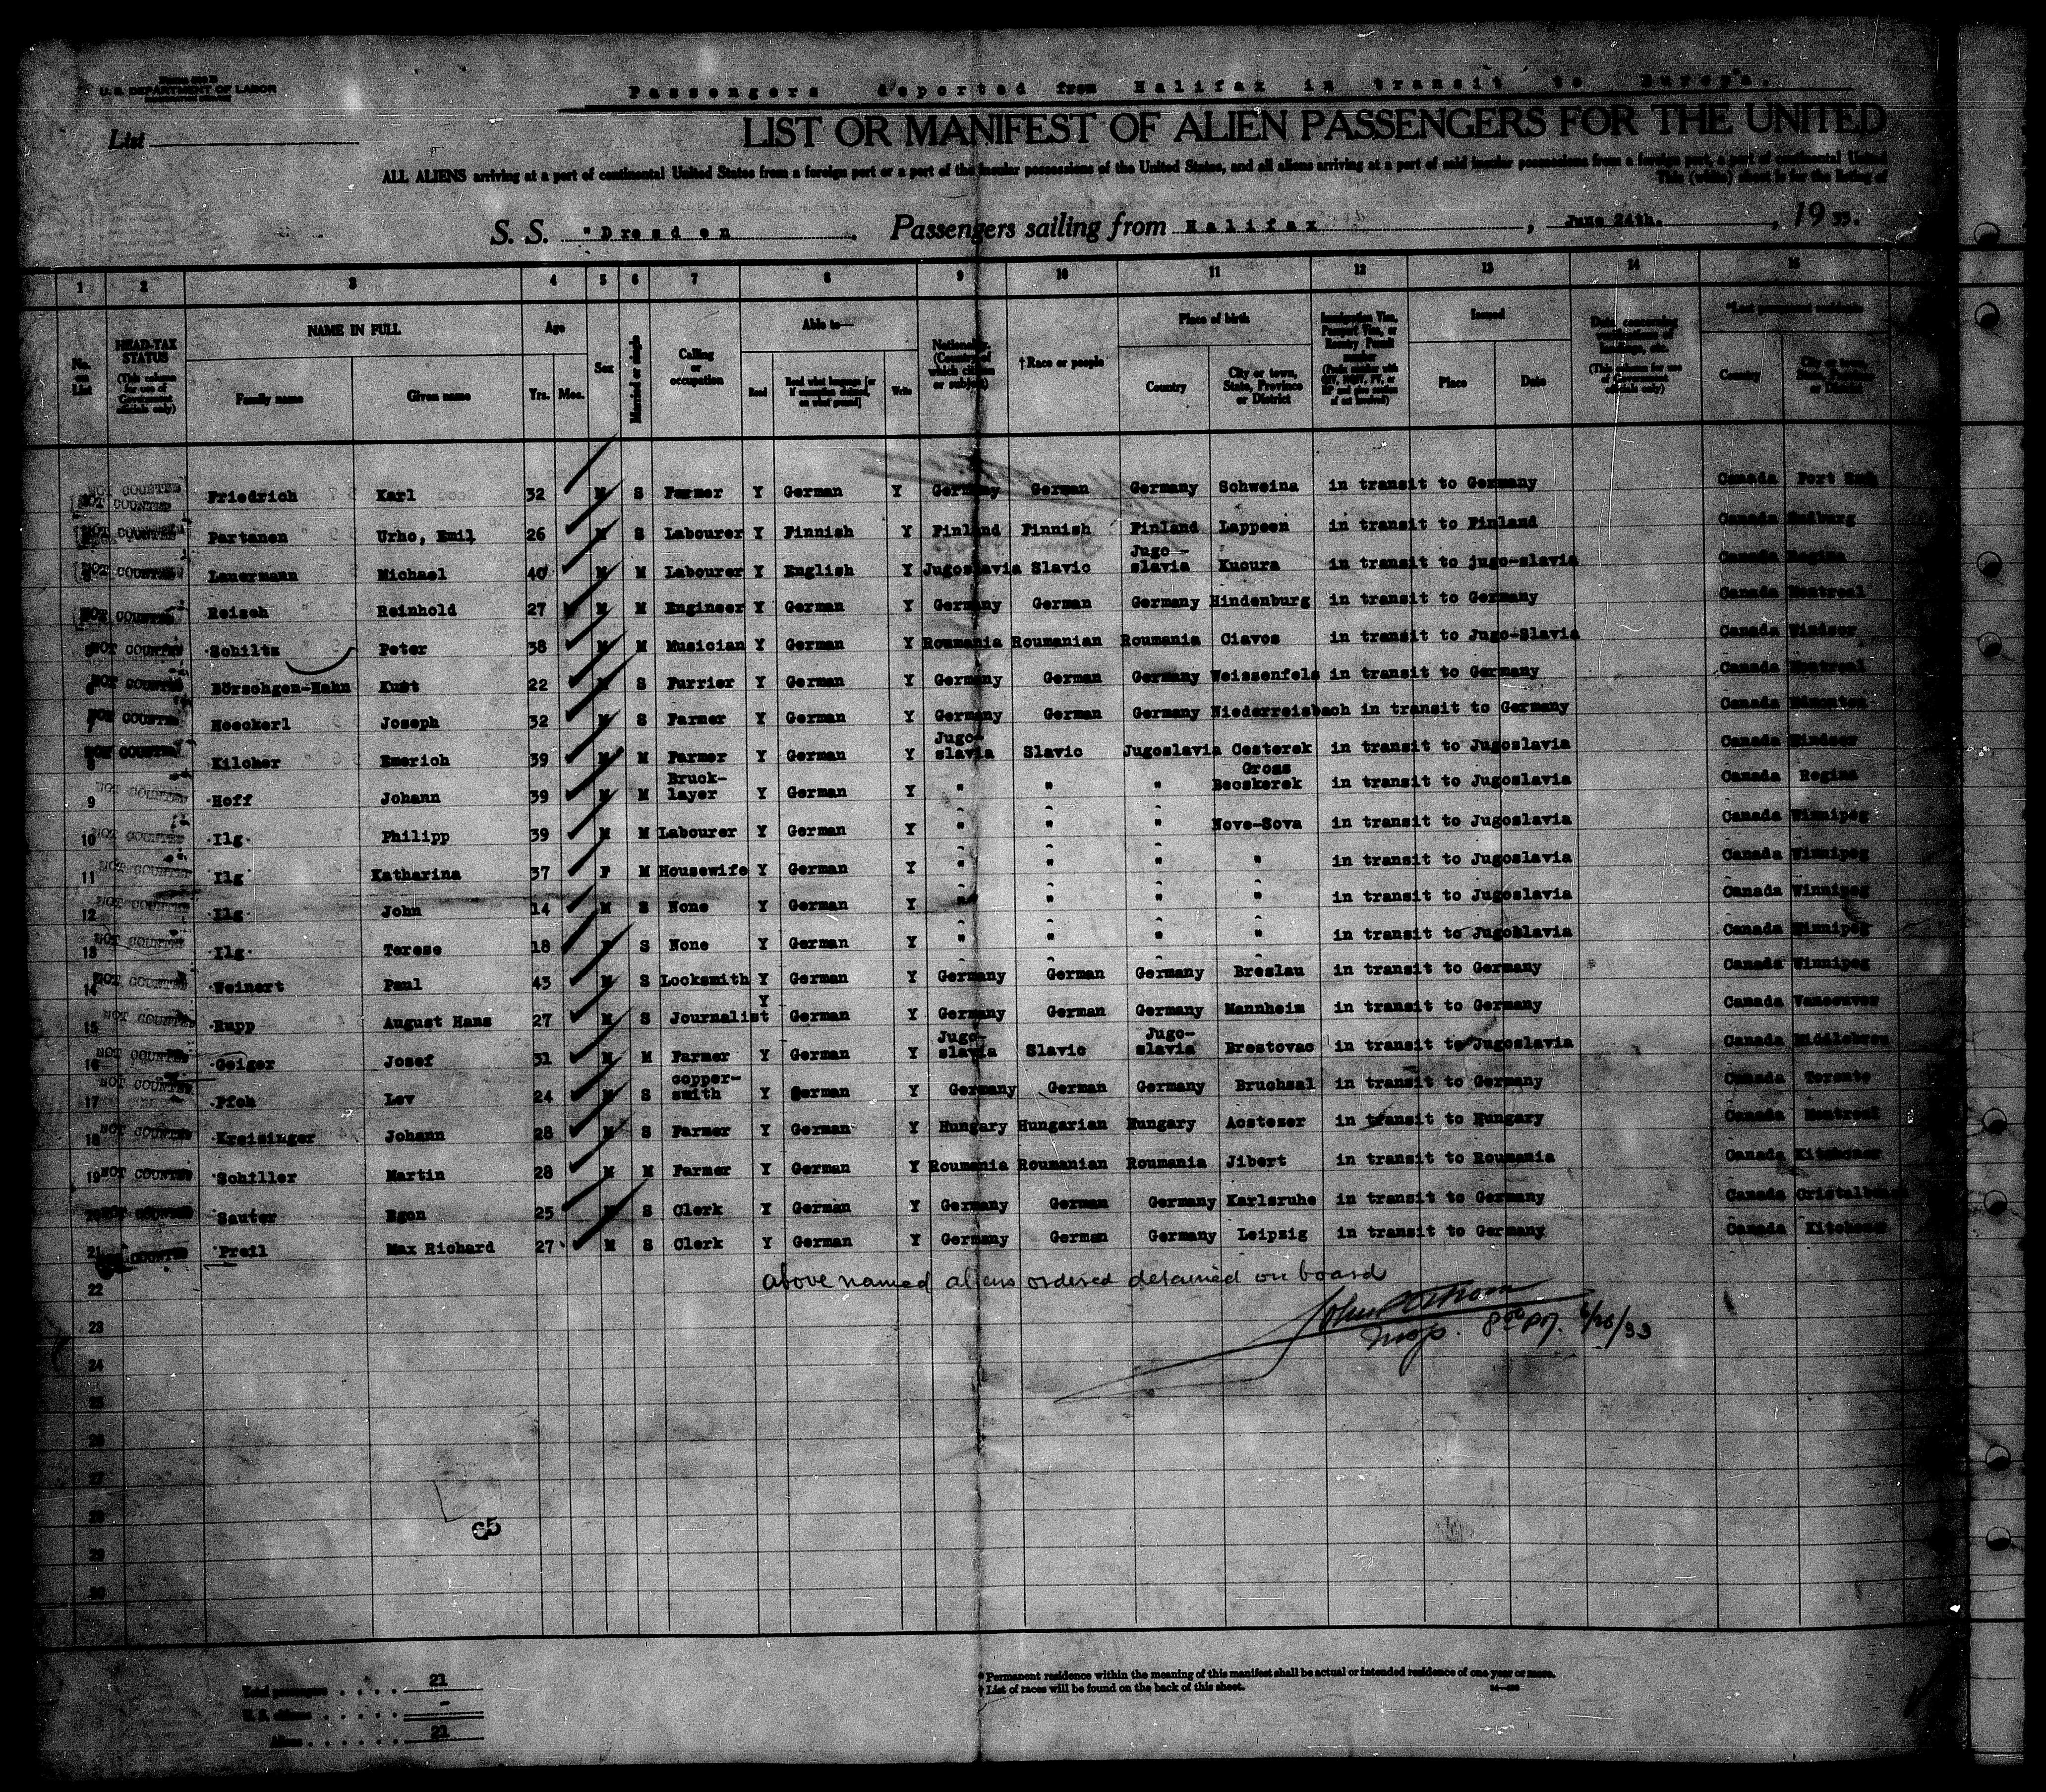 U. S. DEPARTMENT OF LABOR
Passengers deported from Halifax in transit to Europa.
List
LIST OR MANIFEST OF ALIEN PASSENGERS FOR THE UNITED
ALL ALIENS arriving at a port of continental United States from a foreign port or a port of the insular possessions of the United States, and all aliens arriving at a port of said insular possessions from a foreign port, a port of continental United
This (white) sheet is for the listing of
S. S. "Dresden Passengers sailing from Halifax, June 24th., 1933.
1 2 3 4 5 6 7 8 9 10 11 12 13 14 15
No. on List
HEAD-TAX STATUS (This column for use of Government officials only)
NAME IN FULL
Family name Given name
Age
Yrs. Mos.
Sex
Married or single
Calling or occupation
Able to—
Read Read what language [or if exemption claimed, on what ground] Write
Nationality. (Country of which citizen or subject)
†Race or people
Place of birth
Country City or town, State, Province or District
Immigration Visa, Passport Visa, or Reentry Permit number
Issued
Place Date
(This column for use of Government officials only)
*Last permanent residence
Country City or town, State, Province or District
NOT COUNTED
NOT COUNTED Friedrich Karl 32 M S Farmer Y German Y Germany German Germany Schweina in transit to Germany Canada Fort
NOT COUNTED Partanen Urho, Emil 26 M S Labourer Y Finnish Y Finland Finnish Finland Lappeen in transit to Finland Canada Sudburg
3 NOT COUNTED Lauermann Michael 40 M M Labourer Y English Y Jugoslavia Slavic Jugo-slavia Kucura in transit to jugo-slavia Canada Regina
NOT COUNTED Reisch Reinhold 27 M M Engineer Y German Y Germany German Germany Hindenburg in transit to Germany Canada Montreal
5 NOT COUNTED Schiltz Peter 38 M M Musician Y German Y Roumania Roumanian Roumania Ciavos in transit to Jugo-Slavia Canada Windsor
6 NOT COUNTED Börschgen-Hahn Kurt 22 M S Furrier Y German Y Germany German Germany Weissenfels in transit to Germany Canada Montreal
7 NOT COUNTED Hoeckerl Joseph 32 M S Farmer Y German Y Germany German Germany Niederreisbach in transit to Germany Canada Edmonton
8 NOT COUNTED Kilcher Emerich 39 M M Farmer Y German Y Jugo-slavia Slavic Jugoslavia Cesterek in transit to Jugoslavia Canada Windsor
9 NOT COUNTED Hoff Johann 39 M M Bruck-layer Y German Y " " " Gross Becskerek in transit to Jugoslavia Canada Regina
10 NOT COUNTED Ilg Philipp 39 M M Labourer Y German Y " " " Nove-Sova in transit to Jugoslavia Canada Winnipeg
11 NOT COUNTED Ilg Katharina 37 F M Housewife Y German Y " " " " in transit to Jugoslavia Canada Winnipeg
12 NOT COUNTED Ilg John 14 M S None Y German Y " " " " in transit to Jugoslavia Canada Winnipeg
13 NOT COUNTED Ilg Terese 18 F S None Y German Y " " " " in transit to Jugoslavia Canada Winnipeg
14 NOT COUNTED Weinert Paul 43 M S Locksmith Y German Y Germany German Germany Breslau in transit to Germany Canada Winnipeg
15 NOT COUNTED Rupp August Hans 27 M S Journalist Y German Y Germany German Germany Mannheim in transit to Germany Canada Vancouver
16 NOT COUNTED Geiger Josef 31 M M Farmer Y German Y Jugo-slavia Slavic Jugo-slavia Brestovac in transit to Jugoslavia Canada
17 NOT COUNTED Pfoh Lev 24 M S copper-smith Y German Y Germany German Germany Bruchsal in transit to Germany Canada Toronto
18 NOT COUNTED Kreisinger Johann 28 M S Farmer Y German Y Hungary Hungarian Hungary Acsteszer in transit to Hungary Canada Montreal
19 NOT COUNTED Schiller Martin 28 M M Farmer Y German Y Roumania Roumanian Roumania Jibert in transit to Roumania Canada Kitchener
20 NOT COUNTED Sauter Egon 25 M S Clerk Y German Y Germany German Germany Karlsruhe in transit to Germany Canada
21 NOT COUNTED Preil Max Richard 27 M S Clerk Y German Y Germany German Germany Leipzig in transit to Germany Canada Kitchener
22 above named aliens ordered detained on board
23
Insp. 8 PM. 6/26/33
24
25
26
27
28
65
29
30
Total passengers 21
U. S. citizens -
Aliens 21
* Permanent residence within the meaning of this manifest shall be actual or intended residence of one year or more.
† List of races will be found on the back of this sheet.